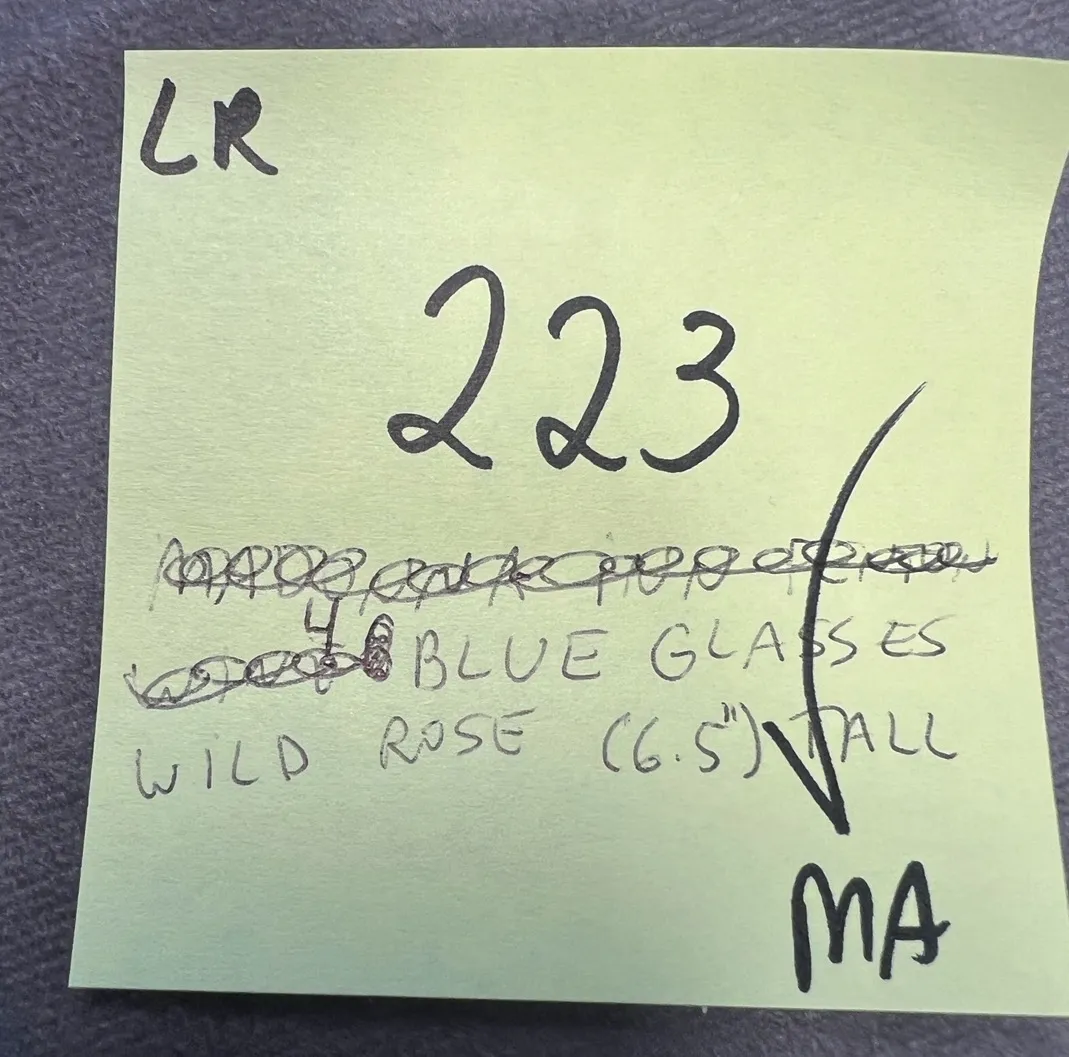 LR
223
4 BLUE GLASSES
WILD ROSE (6.5") TALL
MA